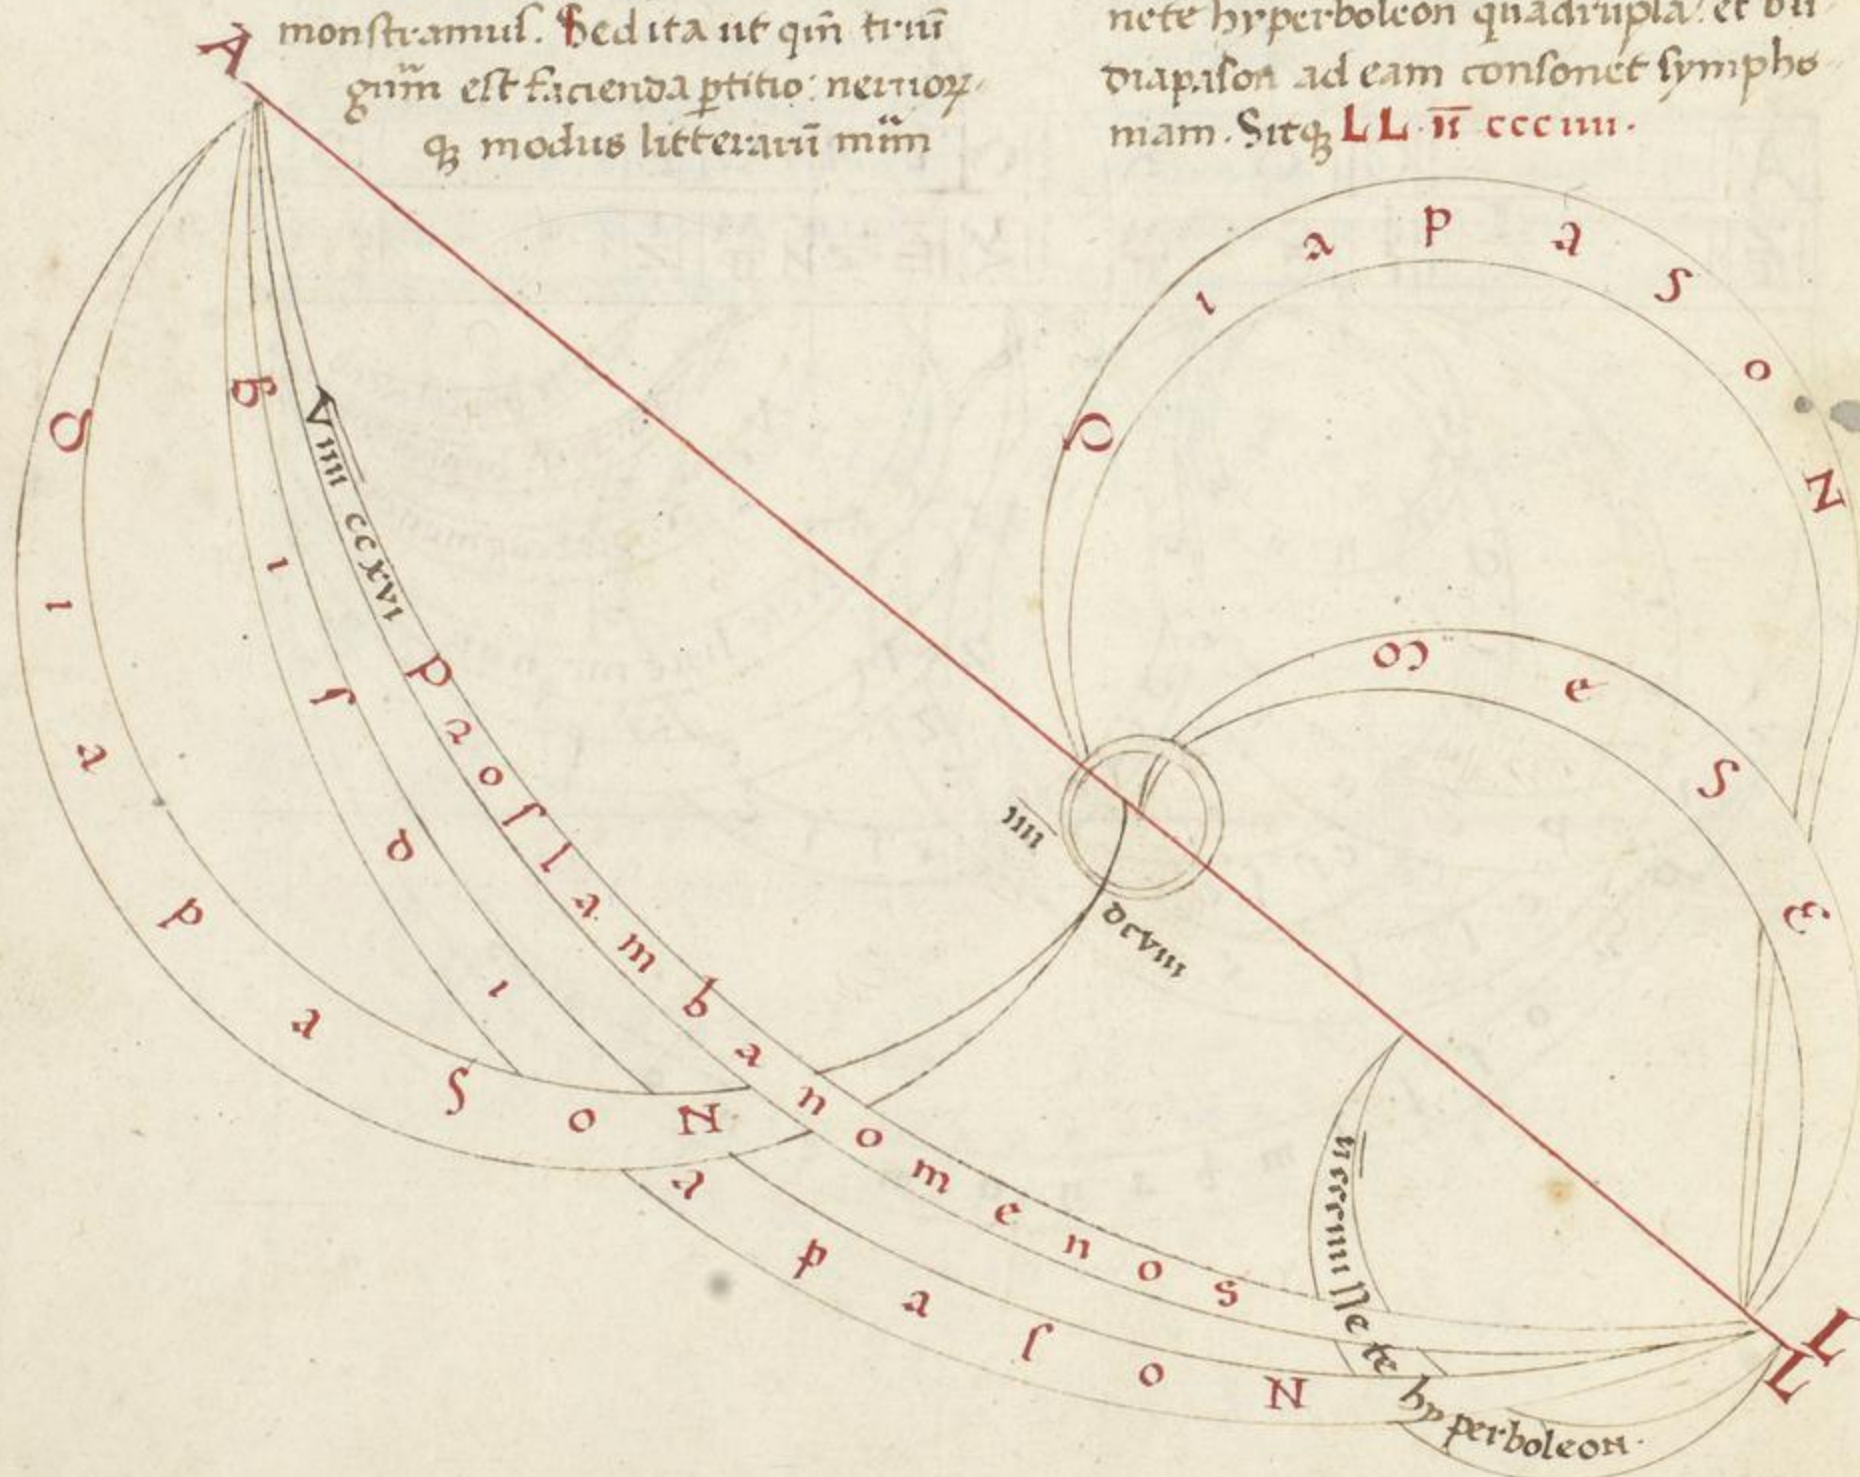 monstramus. Sed ita ut qm̄ triū
gnūm est facienda ptitio: neruoꝝ
qȝ modus litterarū mūm
nete hyperboleon quadrupla: et bis
diapason ad eam consonet sympho
niam. Sitqȝ LL. īī cccıııı.
A
Diapason
Bisdiapason
V̅ı̅ı̅ı̅ı̅ ccxvı
Paoslambanomenos
Diapason
ı̅ı̅ı̅ı̅
dcvııı
MESE
ı̅ı̅ cccıııı Nete hyperboleon.
LL